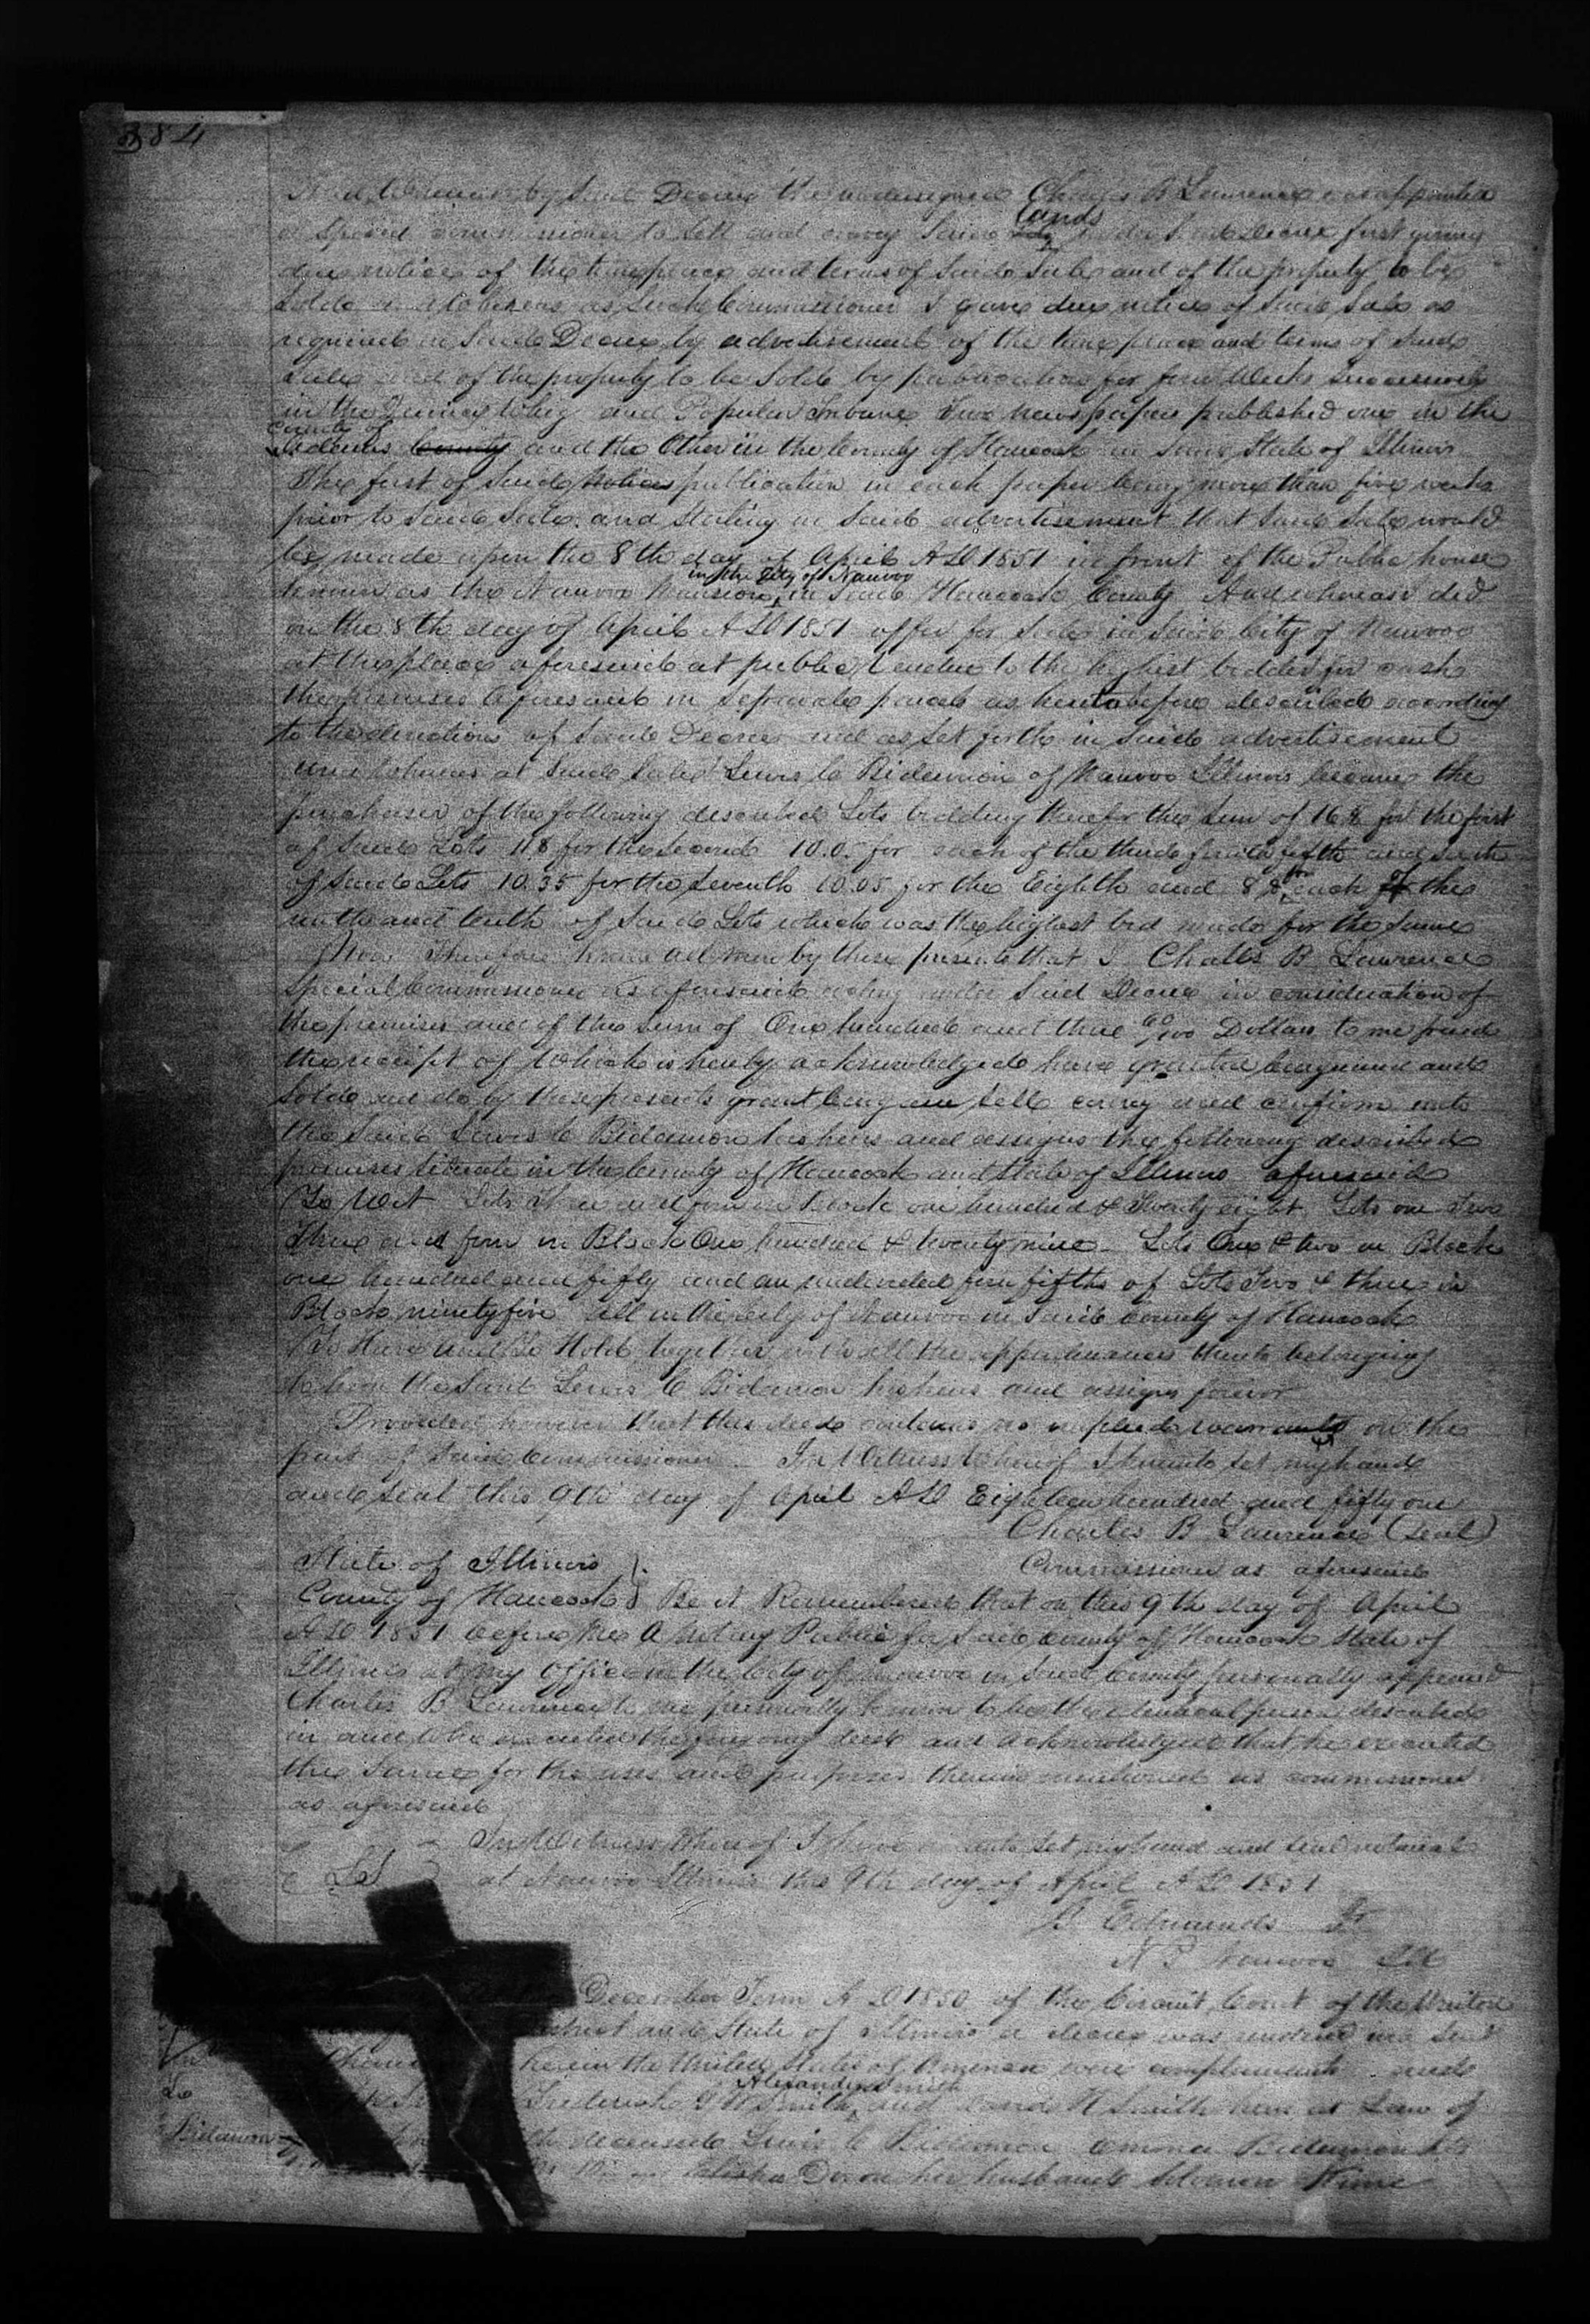 384
And Whereas by Said Decree the undersigned Charles B Lawrence was appointed
a Special Commissioner to Sell and convey Said Lots lands under Said Decree first giving
due notice of the time place and terms of Said Sale and of the property to be
Sold and Whereas as Such Commissioner I gave due notice of Said Sale as
required in Said Decree by advertisement of the time place and terms of Said
Sale and of the property to be Sold by publication for four Weeks Successively
in the Quincy Whig and Popular Tribune two newspapers published one in the
county of Adams County and the Other in the County of Hancock in Said State of Illinois
The first of Said Notices publication in each paper being more than five weeks
prior to Said Sale and Stating in Said advertisement that Said Sale would
be made upon the 8th day of April AD 1851 in front of the Public house
known as the Nauvoo Mansion in the City of Nauvoo in Said Hancock County And whereas I did
on the 8th day of April AD 1851 offer for Sale in Said City of Nauvoo
at the place aforesaid at public Vendue to the highest bidder for cash
the premises aforesaid in Separate parcels as hereinbefore described according
to the directions of Said Decree and as Set forth in Said advertisement
and whereas at Said Sale Lewis C Bidamon of Nauvoo Illinois became the
purchaser of the following described Lots bidding therefor the Sum of 16.$ for the first
of Said Lots 11$ for the Second 10.05 for each of the third fourth fifth and Sixth
of Said Lots 10.35 for the Seventh 10.05 for the Eighth and 8$ for each of the
ninth and tenth of Said Lots which was the highest bid made for the Same
Now Therefore know all men by these presents that I Charles B Lawrence
Special Commissioner as aforesaid acting under Said Decree in consideration of
the premises and of the Sum of One hundred and three 60/100 Dollars to me paid
the receipt of Which is hereby acknowledged have granted bargained and
Sold and do by these presents grant bargain Sell convey and confirm unto
the Said Lewis C Bidamon his heirs and assigns the following described
premises Situate in the County of Hancock and State of Illinois aforesaid
To Wit Lots three and four in Block one hundred & Twenty eight Lots one Two
Three and four in Block One hundred & twenty nine Lots One & two in Block
one hundred and fifty and an undivided four fifths of Lots Two & three in
Block ninety five all in the City of Nauvoo in Said County of Hancock
To Have and To Hold together with all the appurtenances thereto belonging
to him the Said Lewis C Bidamon his heirs and assigns forever
Provided however that this deed contains no implied warranty on the
part of Said Commissioner In Witness Whereof I hereunto Set my hand
and Seal this 9th day of April AD Eighteen hundred and fifty one
Charles B Lawrence (Seal)
Commissioner as aforesaid
State of Illinois
County of Hancock Be it Remembered that on this 9th day of April
AD 1851 before Me A Notary Public for Said County of Hancock State of
Illinois at my Office in the City of Nauvoo in Said County personally appeared
Charles B Lawrence to me personally known to be the identical person described
in and Who executed the foregoing deed and acknowledged that he executed
the Same for the uses and purposes therein mentioned as commissioner
as aforesaid
In Witness Whereof I have hereunto Set my hand and Seal notarial
LS
at Nauvoo Illinois this 9th day of April AD 1851
G Edmunds Jr
N P Nauvoo Ill
December Term AD 1850 of the Circuit Court of the United
District and State of Illinois a decree was rendered in a Suit
wherein the United States of America were complainants and
To
Frederick G W Smith Alexander Smith and David H Smith heirs at Law of
Bidamon
deceased Lewis C Bidamon Emma Bidamon
Elisha Dixon her husband